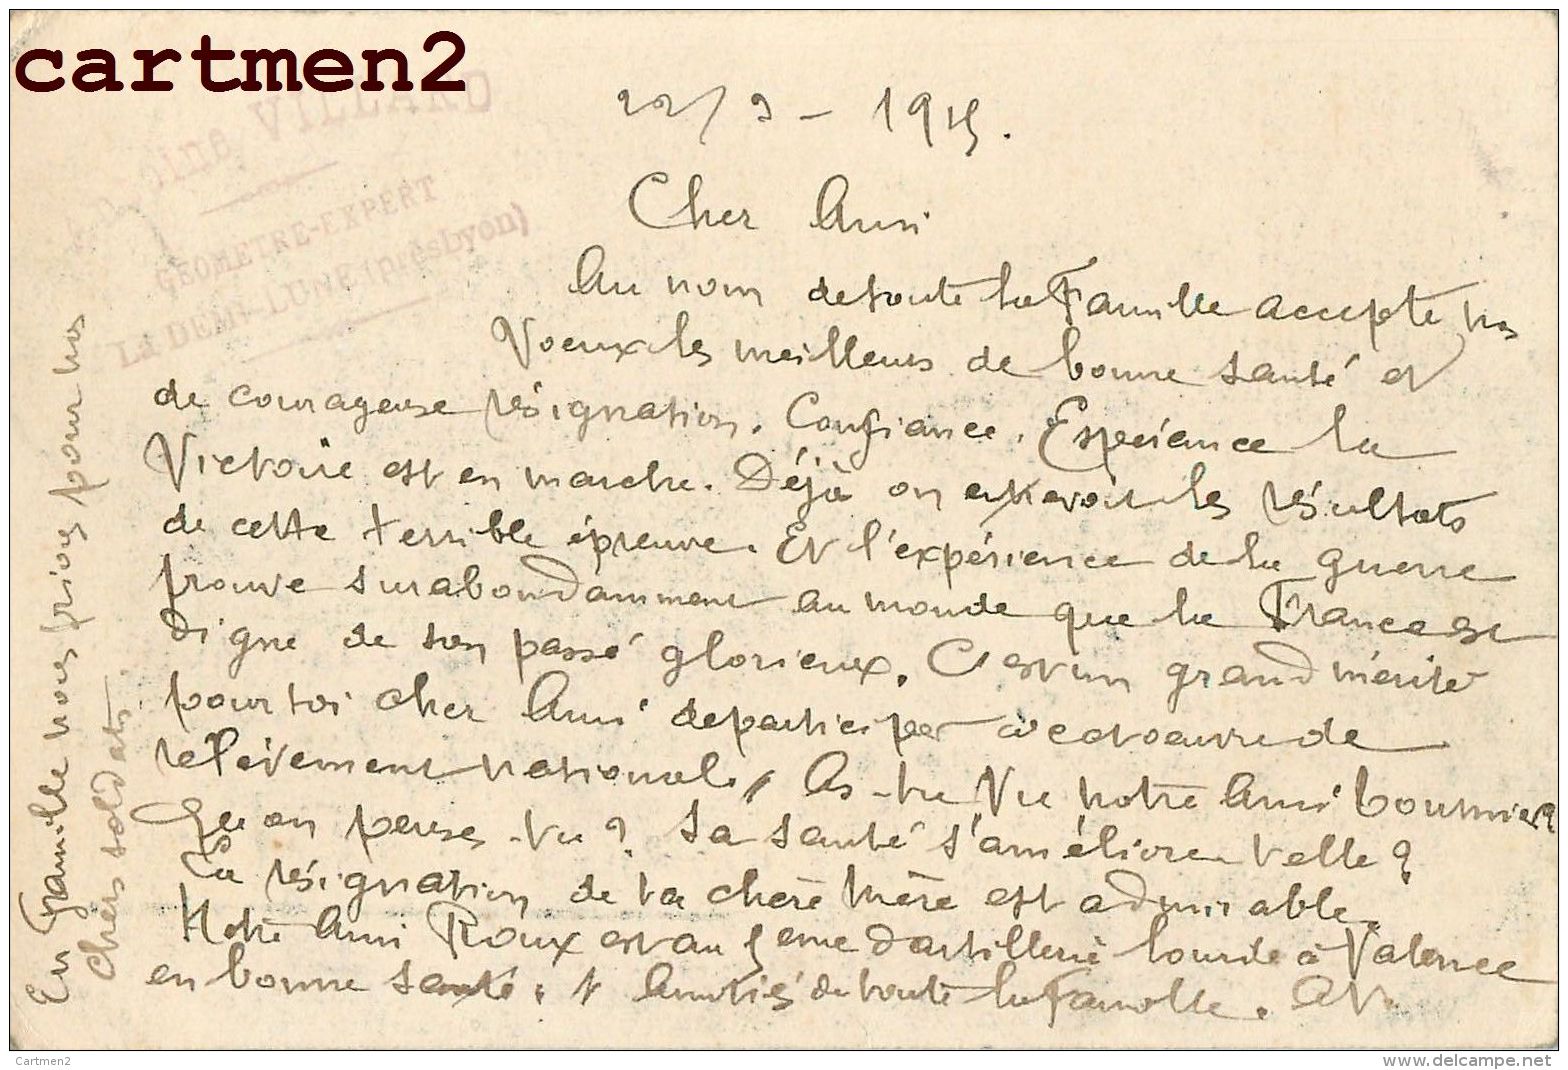 cartmen2
VILLARD
GEOMETRE-EXPERT
La DEMI-LUNE (près Lyon)
22/9 - 1915.
Cher Ami
Au nom de toute la Famille accepte nos
Voeux les meilleurs de bonne santé et
de courageuse résignation. Confiance. Espérance la
Victoire est en marche. Déjà on entrevoit les résultats
de cette terrible épreuve. Et l'expérience de la guerre
prouve surabondamment au monde que la France est
digne de son passé glorieux. C'est un grand mérite
pour toi cher Ami de participer à cet oeuvre de
relèvement national. As-tu vu notre Ami Bournier?
Qu'en penses-tu? Sa santé s'améliore-t-elle?
La résignation de ta chère Mère est admirable.
Notre Ami Roux est au 5eme d'artillerie lourde à Valence
en bonne santé. Amitiés de toute la Famille. AV.
En Famille nous prions pour nos
chers soldats.
Cartmen2
www.delcampe.net